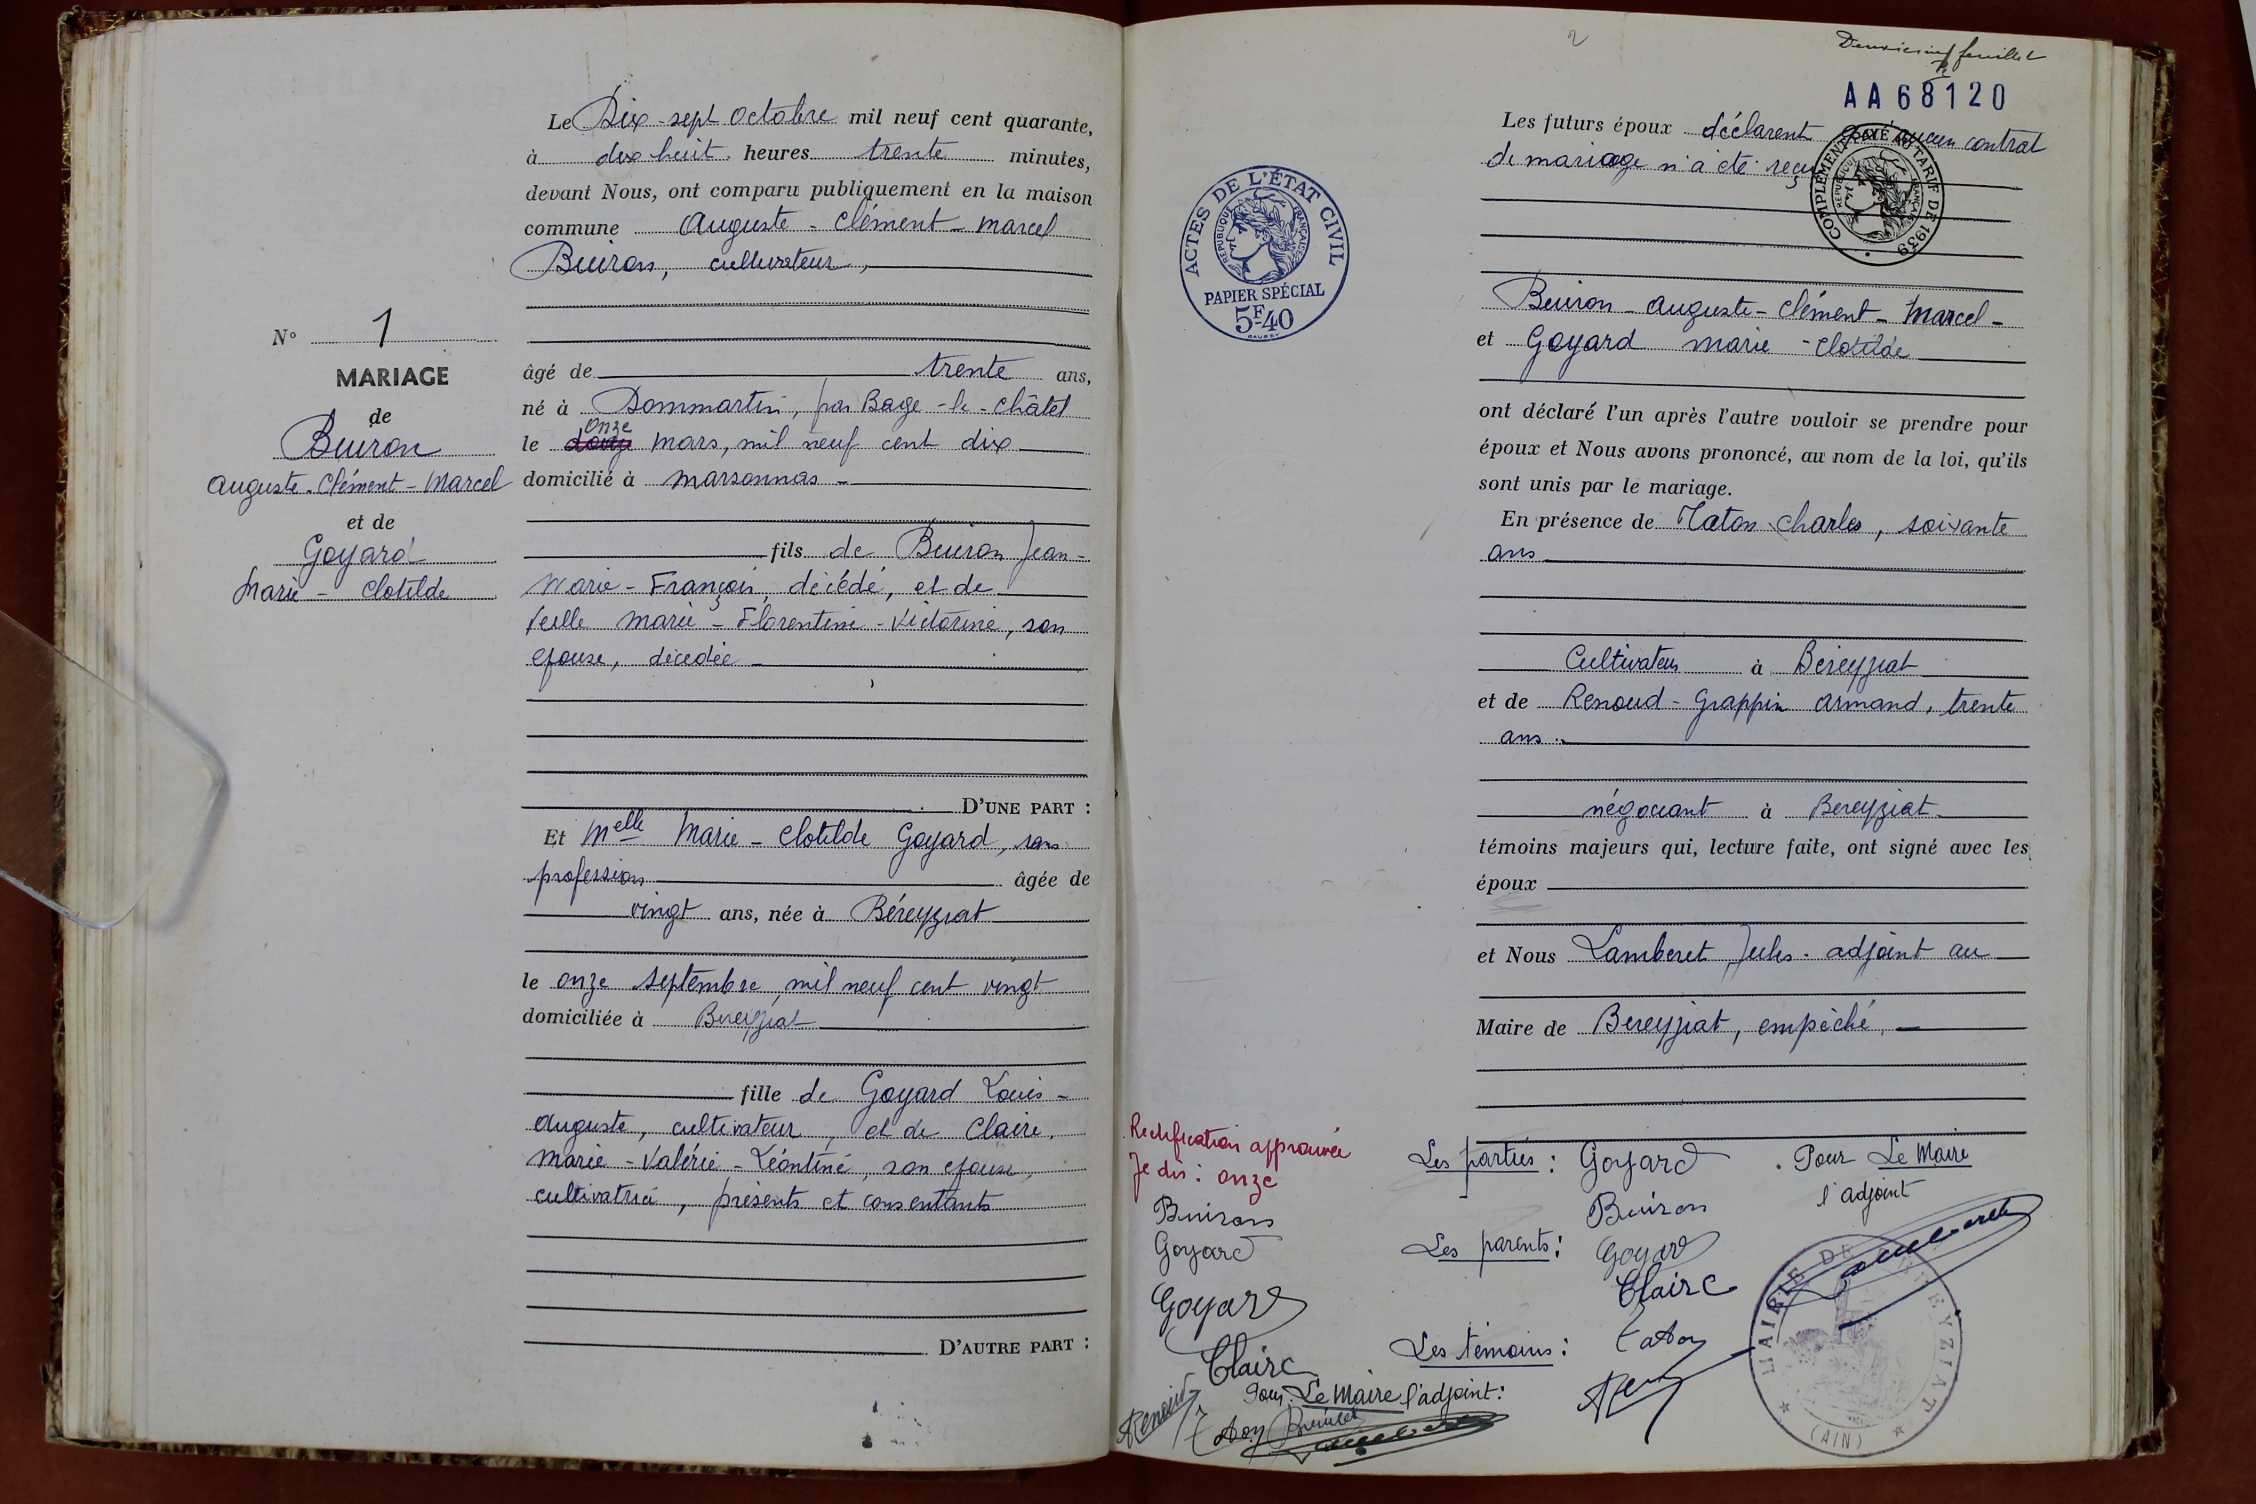 Le Dix-sept Octobre mil neuf cent quarante,
à dix huit heures trente minutes,
devant Nous, ont comparu publiquement en la maison
commune Auguste - Clément - Marcel
Buiron, cultivateur,
N° 1
MARIAGE
de
Buiron
Auguste - Clément - Marcel
et de
Goyard
Marie - Clotilde
âgé de trente ans,
né à Dommartin, par Bage-le-Châtel
onze
le mars, mil neuf cent dix
domicilié à Marsonnas -
fils de Buiron Jean -
Marie - François, décédé, et de
Marie - Florentine - Victorine, son
épouse, décédée
D'UNE PART :
Et Melle Marie - Clotilde Goyard, sans
profession âgée de
vingt ans, née à Béreyziat
le onze septembre, mil neuf cent vingt
domiciliée à Bereyziat
fille de Goyard Louis -
Auguste, cultivateur, et de Claire,
Marie - Valérie - Léontine, son épouse,
cultivatrice, présents et consentants
D'AUTRE PART :
2
Deuxième feuillet
AA68120
Les futurs époux déclarent qu'aucun contrat
de mariage n'a été reçu
COMPLÉMENT PAYÉ AU TARIF DE 1939
REPUBLIQUE FRANÇAISE
ACTES DE L'ÉTAT CIVIL
REPUBLIQUE FRANÇAISE
PAPIER SPÉCIAL
5F.40
Buiron - Auguste - Clément - Marcel -
et Goyard Marie - Clotilde
ont déclaré l'un après l'autre vouloir se prendre pour
époux et Nous avons prononcé, au nom de la loi, qu'ils
sont unis par le mariage.
En présence de Taton Charles, soixante
ans
Cultivateur à Béreyziat
et de Renoud-Grappin Armand, trente
ans.
négociant à Bereyziat.
témoins majeurs qui, lecture faite, ont signé avec les
époux
et Nous Lamberet Jules. adjoint au
Maire de Bereyziat, empêché.
Rectification approuvée
Je dis : onze
Buiron
Goyard
Goyard
Claire
Pour Le Maire l'adjoint :
Renoud
Taton
Les parties : Goyard
Buiron
Les parents : Goyard
Claire
Les témoins : Taton
Pour Le Maire
l'adjoint
Lamberet
MAIRIE DE BEREYZIAT
(AIN)